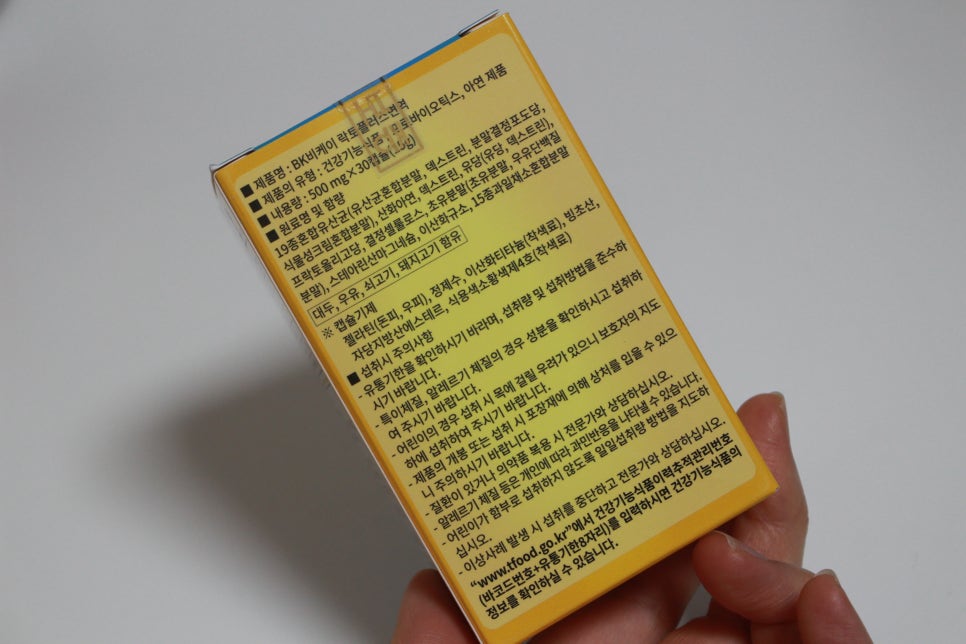 ■ 제품명 : BK비케이 락토플러스면역
■ 제품의 유형 : 건강기능식품, 프로바이오틱스, 아연 제품
■ 내용량 : 500 mg×30캡슐(15g)
■ 원료명 및 함량
19종혼합유산균(유산균혼합분말, 덱스트린, 분말결정포도당,
식물성크림혼합분말), 산화아연, 덱스트린, 유당(유당, 덱스트린),
프락토올리고당, 결정셀룰로스, 초유분말(초유분말, 우유단백질
분말), 스테아린산마그네슘, 이산화규소, 15종과일채소혼합분말
대두, 우유, 쇠고기, 돼지고기 함유
※ 캡슐기제
젤라틴(돈피, 우피), 정제수, 이산화티타늄(착색료), 빙초산,
자당지방산에스테르, 식용색소황색제4호(착색료)
■ 섭취시 주의사항
- 유통기한을 확인하시기 바라며, 섭취량 및 섭취방법을 준수하
시기 바랍니다.
- 특이체질, 알레르기 체질의 경우 성분을 확인하시고 섭취하
여 주시기 바랍니다.
- 어린이의 경우 섭취 시 목에 걸릴 우려가 있으니 보호자의 지도
하에 섭취하여 주시기 바랍니다.
- 제품의 개봉 또는 섭취 시 포장재에 의해 상처를 입을 수 있으
니 주의하시기 바랍니다.
- 질환이 있거나 의약품 복용 시 전문가와 상담하십시오.
- 알레르기 체질 등은 개인에 따라 과민반응을 나타낼 수 있습니다.
- 어린이가 함부로 섭취하지 않도록 일일섭취량 방법을 지도하
십시오.
- 이상사례 발생 시 섭취를 중단하고 전문가와 상담하십시오.
“www.tfood.go.kr”에서 건강기능식품이력추적관리번호
(바코드번호+유통기한8자리)를 입력하시면 건강기능식품의
정보를 확인하실 수 있습니다.